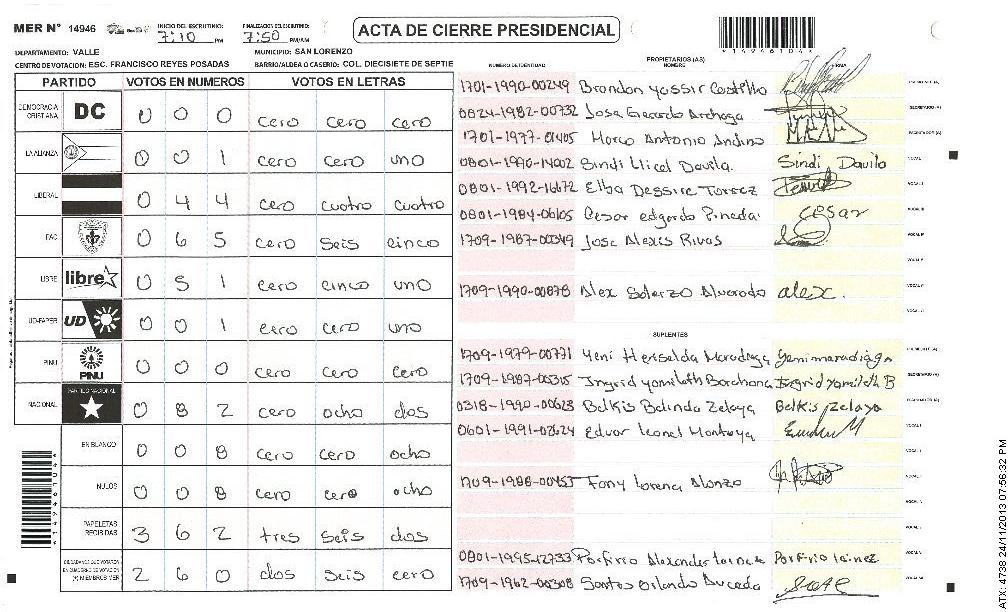 MER Nº 14946 INICIO DEL ESCRUTINIO: 7:10 PM FINALIZACION ESCRUTINIO: 7:50 PM/AM
ACTA DE CIERRE PRESIDENCIAL
DEPARTAMENTO: VALLE MUNICIPIO: SAN LORENZO
CENTRO DE VOTACION: ESC. FRANCISCO REYES POSADAS BARRIO/ALDEA O CASERÍO: COL. DIECISIETE DE SEPTIE
PARTIDO VOTOS EN NUMEROS VOTOS EN LETRAS
DEMOCRACIA CRISTIANA DC 0 0 0 cero cero cero
LA ALIANZA 0 0 1 cero cero uno
LIBERAL 0 4 4 cero cuatro cuatro
PAC 0 6 5 cero seis cinco
LIBRE libre 0 5 1 cero cinco uno
UD-FAPER UD 0 0 1 cero cero uno
PINU PINU 0 0 0 cero cero cero
NACIONAL PARTIDO NACIONAL 0 8 2 cero ocho dos
EN BLANCO 0 0 8 cero cero ocho
NULOS 0 0 8 cero cero ocho
PAPELETAS RECIBIDAS 3 6 2 tres seis dos
CIUDADANOS QUE VOTARON EN CUADERNO DE VOTACION (+) MIEMBROS MER 2 6 0 dos seis cero
NUMERO DE IDENTIDAD PROPIETARIOS (AS) NOMBRE FIRMA
1701-1990-00249 Brandon yossir Castillo
0824-1982-00732 Jose Gerardo
1701-1977-01405 Marco Antonio Andino
0801-1990-14002 Sindi Davila. Sindi Davila
0801-1992-16672 Elba Dessire Torrez
0801-1984-06105 Cesar edgardo Pineda Cesar
1709-1987-00349 Jose Alexis Rivas
1709-1990-00878 Alex Alvarado alex.
SUPLENTES
1709-1979-00771 Yeni Heriselda Yeni maradiaga
1709-1987-00315 Ingrid yamileth Ingrid Yamileth B
0318-1990-00623 Belkis Belinda Zelaya Belkis Zelaya
0601-1991-02624 Edvar Leonel Montoya
1709-1988-00453 Fany Lorena Alonzo
0801-1995-12733 Porfirio Alexander Porfirio lainez
1709-1962-00308 Santos Orlando
ATX: 4738 24/11/2013 07:56:32 PM